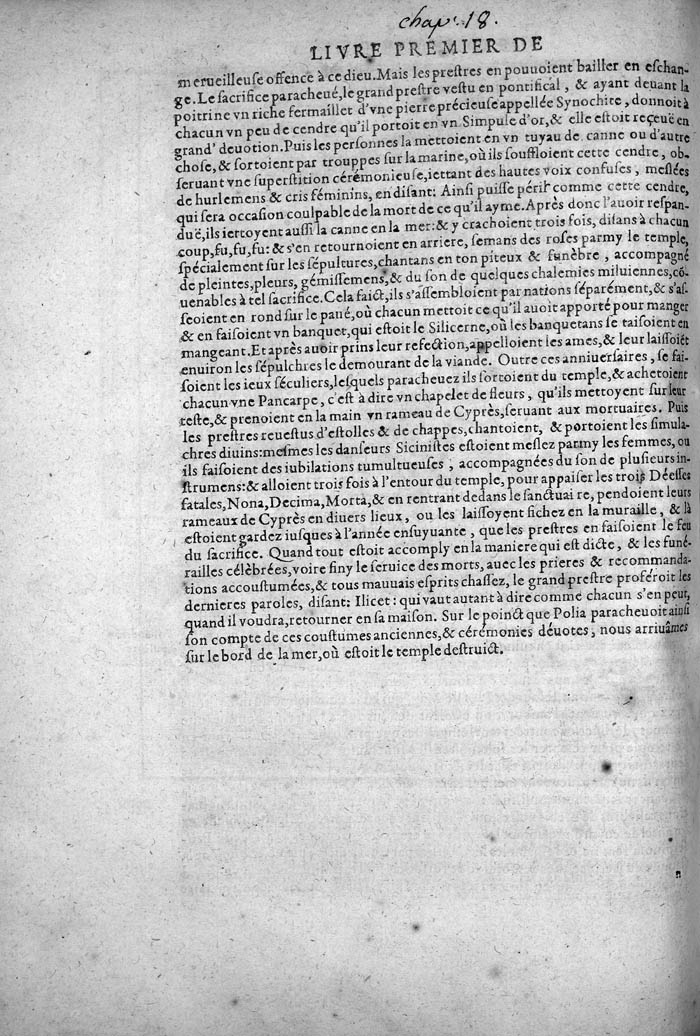 chap. 18.
LIVRE PREMIER DE
merueilleuſe offence à ce dieu. Mais les preſtres en pouuoient bailler en eſchan-
ge. Le ſacrifice paracheué, le grand preſtre veſtu en pontifical, & ayant deuant la
poitrine vn riche fermaillet d'vne pierre précieuſe appellée Synochite, donnoit à
chacun vn peu de cendre qu'il portoit en vn Simpule d'or, & elle eſtoit reçeuë en
grand' deuotion. Puis les perſonnes la mettoient en vn tuyau de canne ou d'autre
choſe, & ſortoient par trouppes ſur la marine, où ils ſouffloient cette cendre, ob-
ſeruant vne ſuperſtition cérémonieuſe, iettant des hautes voix confuſes, meſlées
de hurlemens & cris féminins, en diſant: Ainſi puiſſe périr comme cette cendre,
qui ſera occaſion coulpable de la mort de ce qu'il ayme. Après donc l'auoir reſpan-
duë, ils iertoyent auſſi la canne en la mer: & y crachoient trois fois, diſans à chacun
coup, fu, fu, fu: & s'en retournoient en arriere, ſemans des roſes parmy le temple,
ſpécialement ſur les ſépultures, chantans en ton piteux & funèbre, accompagné
de pleintes, pleurs, gémiſſemens, & du ſon de quelques chalemies miluiennes, cõ-
uenables à tel ſacrifice. Cela faict, ils s'aſſembloient par nations ſéparément, & s'aſ-
ſeoient en rond ſur le paué, où chacun mettoit ce qu'il auoit apporté pour manger
& en faiſoient vn banquet, qui eſtoit le Silicerne, où les banquetans ſe taiſoient en
mangeant. Et après auoir prins leur refection, appelloient les ames, & leur laiſſoiẽt
enuiron les ſépulchres le demourant de la viande. Outre ces anniuerſaires, ſe fai-
ſoient les ieux ſéculiers, leſquels paracheuez ils ſortoient du temple, & achetoient
chacun vne Pancarpe, c'eſt à dire vn chapelet de fleurs, qu'ils mettoyent ſur leur
teſte, & prenoient en la main vn rameau de Cyprès, ſeruant aux mortuaires. Puis
les preſtres reueſtus d'eſtolles & de chappes, chantoient, & portoient les ſimula-
chres diuins: meſmes les danſeurs Siciniſtes eſtoient meſlez parmy les femmes, ou
ils faiſoient des iubilations tumultueuſes, accompagnées du ſon de pluſieurs in-
ſtrumens: & alloient trois fois à l'entour du temple, pour appaiſer les trois Déeſſes
fatales, Nona, Decima, Morta, & en rentrant dedans le ſanctuaire, pendoient leurs
rameaux de Cyprès en diuers lieux, ou les laiſſoyent fichez en la muraille, & là
eſtoient gardez iuſques à l'année enſuyuante, que les preſtres en faiſoient le feu
du ſacrifice. Quand tout eſtoit accomply en la maniere qui eſt dicte, & les funé-
railles célèbrées, voire finy le ſeruice des morts, auec les prieres & recommanda-
tions accouſtumées, & tous mauuais eſprits chaſſez, le grand preſtre proféroit les
dernieres paroles, diſant: Ilicet: qui vaut autant à dire comme chacun s'en peut,
quand il voudra, retourner en ſa maiſon. Sur le poinct que Polia paracheuoit ainſi
ſon compte de ces couſtumes anciennes, & cérémonies déuotes, nous arriuâmes
ſur le bord de la mer, où eſtoit le temple deſtruict.